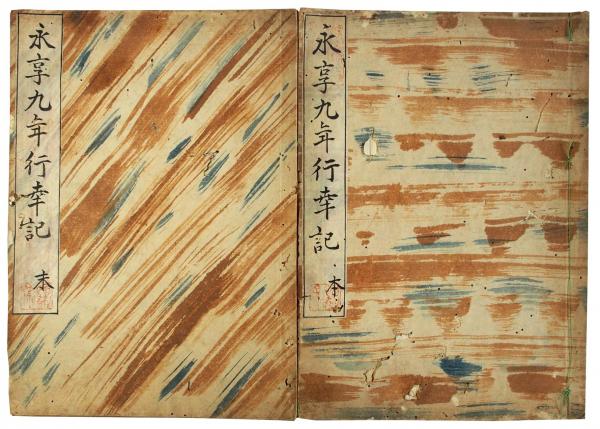 永享九年行幸記
本
永享九年行幸記
本